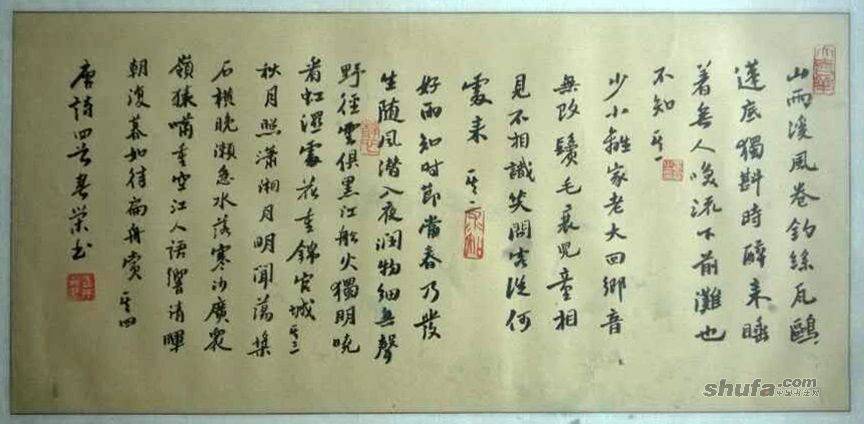 山雨溪風卷釣絲瓦甌
蓬底獨斟時醉來睡
着無人喚流下前灘也
不知 其一
少小離家老大回鄉音
無改鬢毛衰兒童相
見不相識笑問客從何
處來 其二
好雨知時節當春乃發
生随風潛入夜潤物細無聲
野徑雲俱黑江船火獨明曉
看紅濕處花重錦官城 其三
秋月照瀟湘月明聞蕩槳
石橫晚瀨急水落寒沙廣衆
嶺猿嘯重空江人語響清暉
朝復暮如待扁舟賞 其四
唐詩四首春榮書
shufa.com
中国书法网